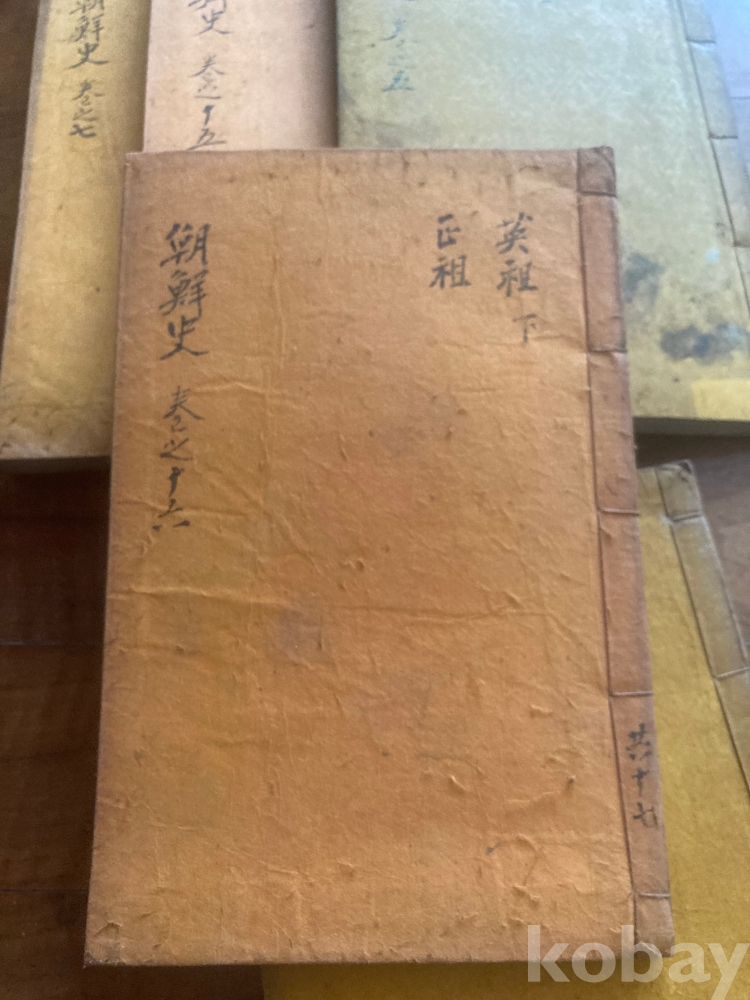 朝鮮史 卷之七
鮮史 卷之十五
卷之五
英祖 下
正祖
朝鮮史 卷之十六
共十七
kobay